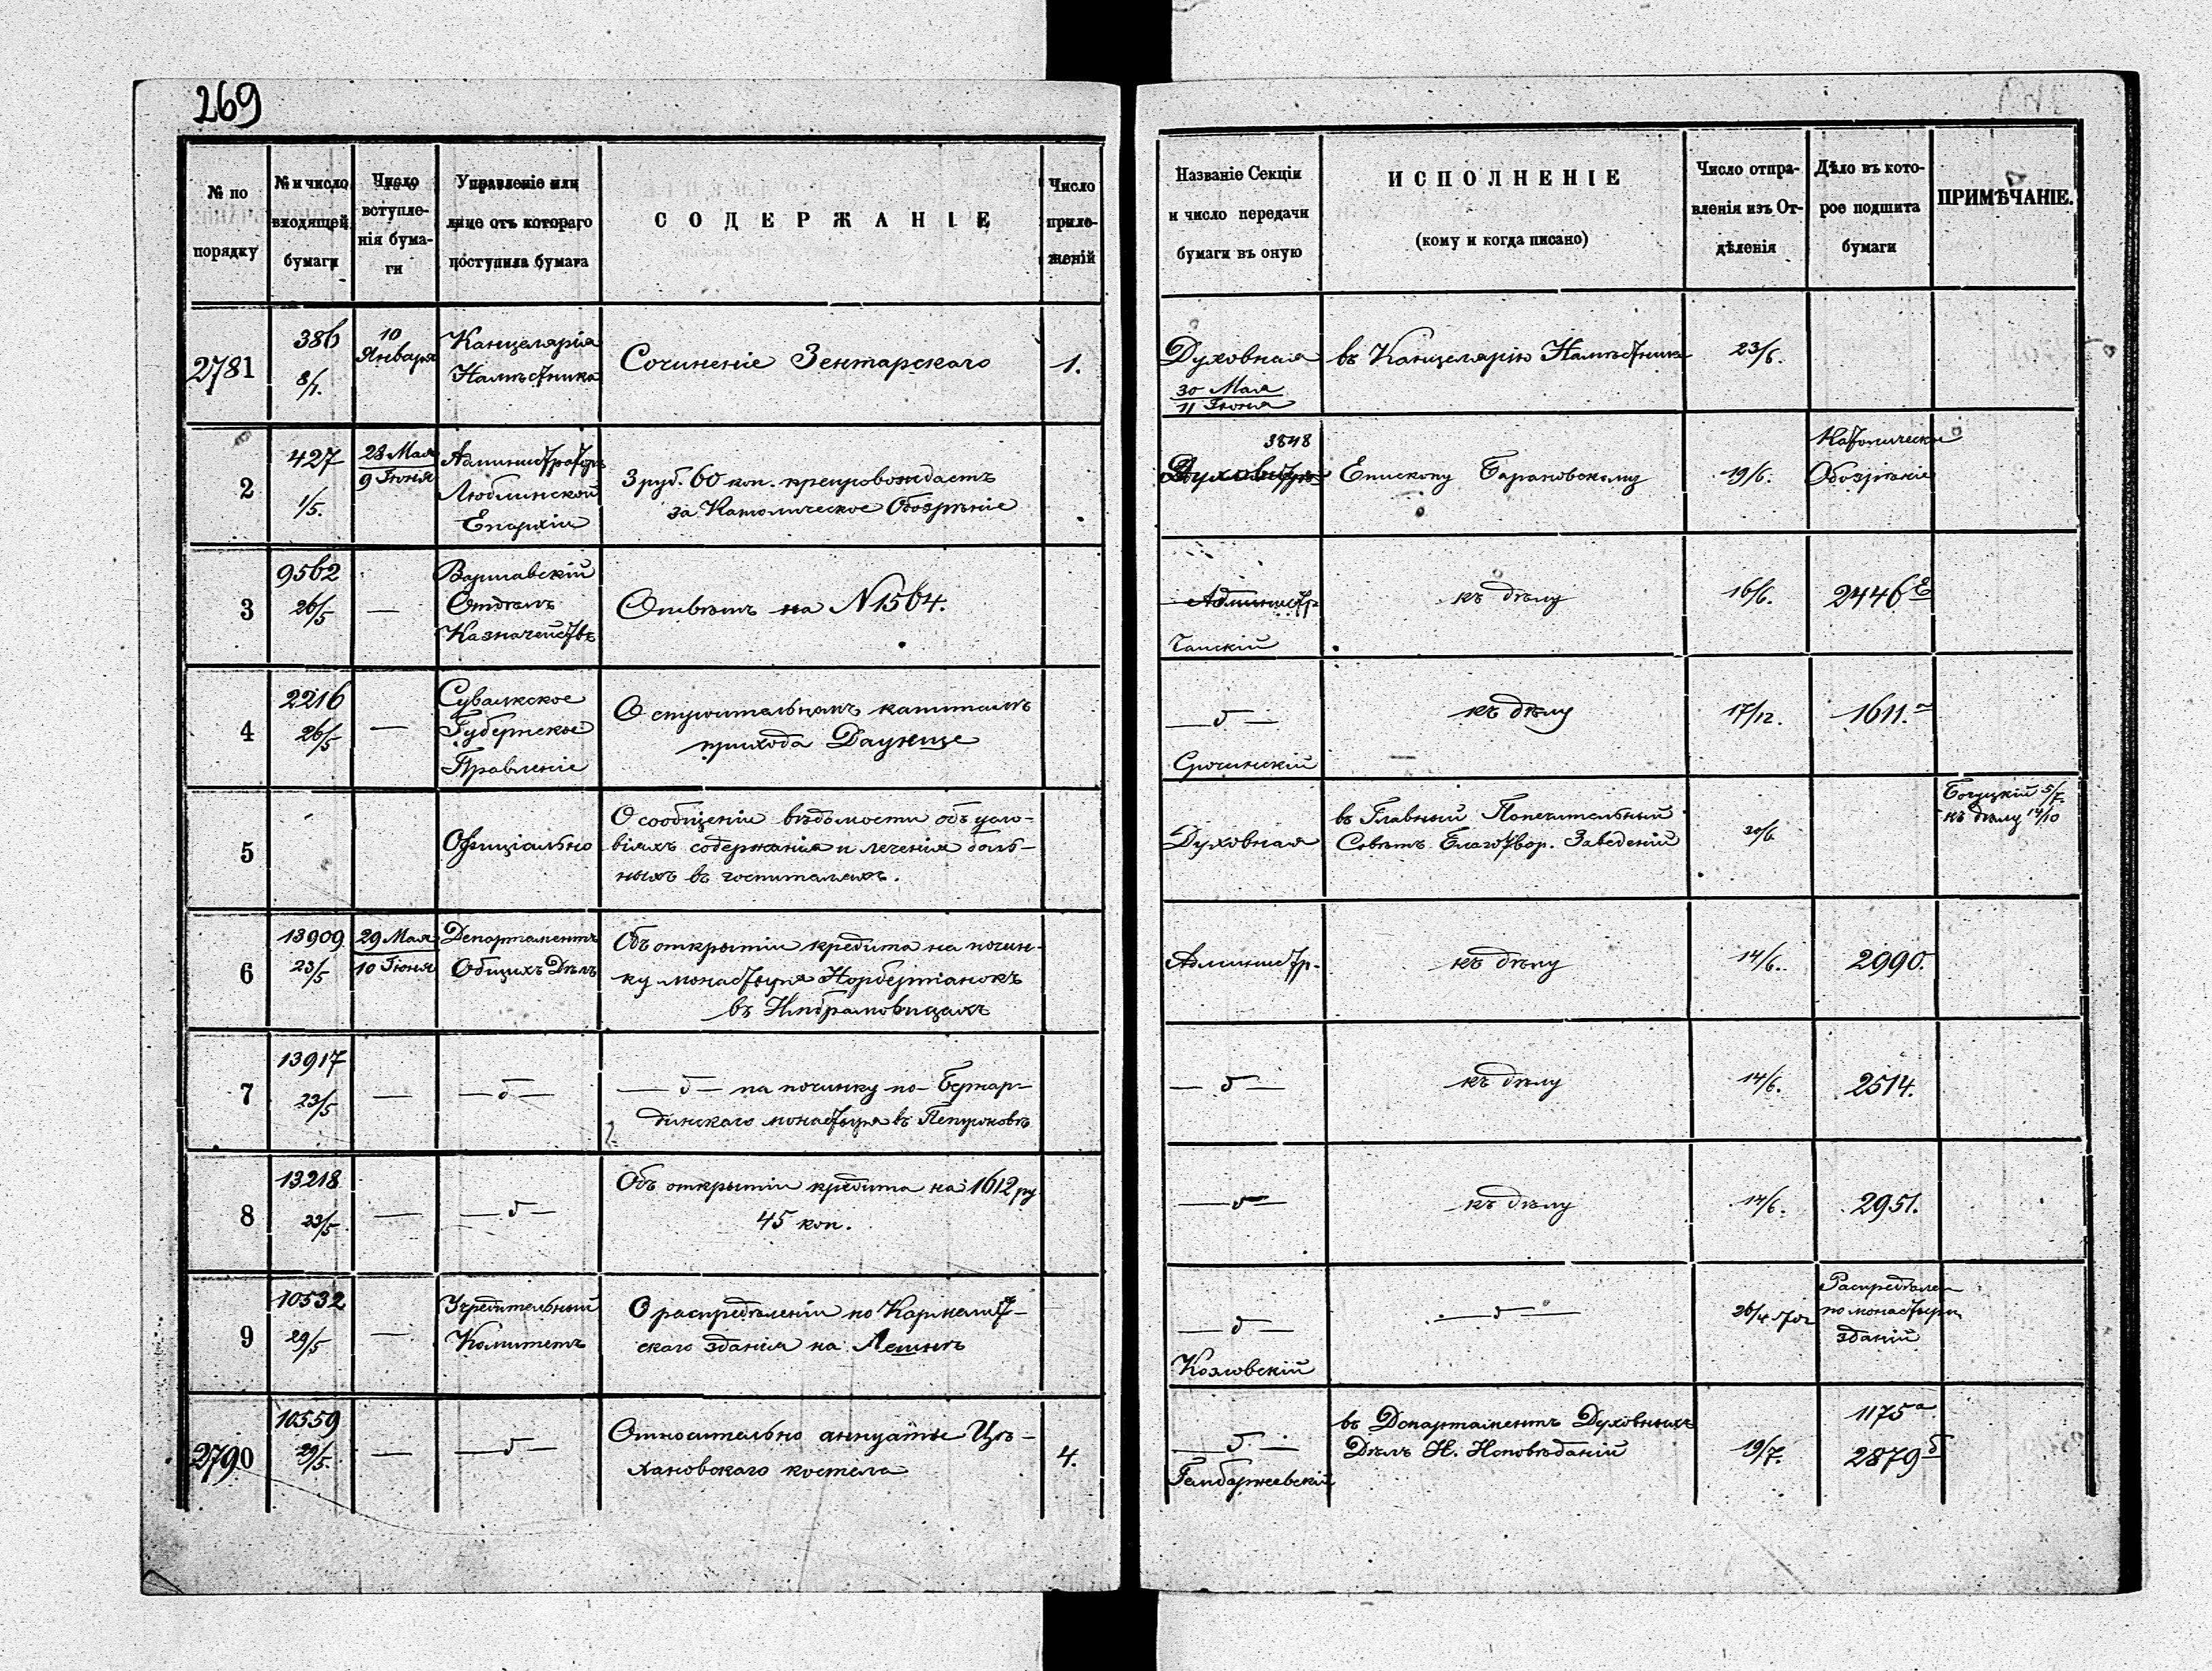 269
№ по
порядку
№ и число
входящей
бумаги
Число
вступле-
нія бума-
ги
Управленіе или
лице отъ котораго
поступила бумага
СОДЕРЖАНІЕ
Число
прило-
женій
Названіе Секціи
и число передачи
бумаги въ оную
ИСПОЛНЕНІЕ
(кому и когда писано)
Число отпра-
вленія изъ От-
дѣленія
Дѣло въ кото-
рое подшита
бумаги
ПРИМѢЧАНІЕ.
2781
386
8/1.
10
Января
Канцелярія
Намѣстника
Сочиненіе Зентарскаго
1.
Духовная
30 Мая
11 Іюня
въ Канцелярію Намѣстника
23/6.
2
427
1/5.
28 Мая
9 Іюня
Администраторъ
Люблинской
Епархіи
3 руб. 60 коп. препровождаетъ
за Католическое Обозрѣніе
3848
Епископу Барановскому
19/6.
Католическое
Обозрѣніе
3
9562
26/5
—
Варшавскій
Отдѣлъ
Казначейства
Отвѣтъ на N 1564.
Администр
къ дѣлу
16/6.
2446
4
2216
26/5
—
Сувалкское
Губернское
Правленіе
О строительномъ капиталѣ
прихода
— б —
къ дѣлу
17/12.
1611.
5
Офиціально
О сообщеніи вѣдомости объ усло-
віяхъ содержанія и леченія боль-
ныхъ въ госпиталяхъ.
Духовная
въ Главный Попечительный
Совѣтъ Благотвор. Заведеній
20/6
Богуцкій 5/7.
къ дѣлу 14/10
6
13909
23/5
29 Мая
10 Іюня
Департаментъ
Общихъ Дѣлъ
Объ открытіи кредита на почин-
ку монастыря Норбертанокъ
въ Имбрамовицахъ
Администр.
къ дѣлу
14/6.
2990.
7
13917
23/5
—
— б —
— б — на починку по-Бернар-
динскаго монастыря въ
— б —
къ дѣлу
14/6.
2514.
8
13218
23/5.
—
— б —
Объ открытіи кредита на 1612 ру
45 коп.
— б —
къ дѣлу
14/6.
2951.
9
10532
29/5
—
Учредительный
Комитетъ
О распредѣленіи по Кармелит-
скаго зданія на Лешнѣ
— б —
Козловскій
— б —
26/4
Распредѣлен
по монастырн
зданій
2790
10559
29/5.
—
— б —
Относительно аннуаты Цѣ-
хановскаго костела
4.
— б —
Гембаржевскій
въ Департаментъ Духовныхъ
Дѣлъ И. Исповѣданій
19/7.
1175 а
2879 б